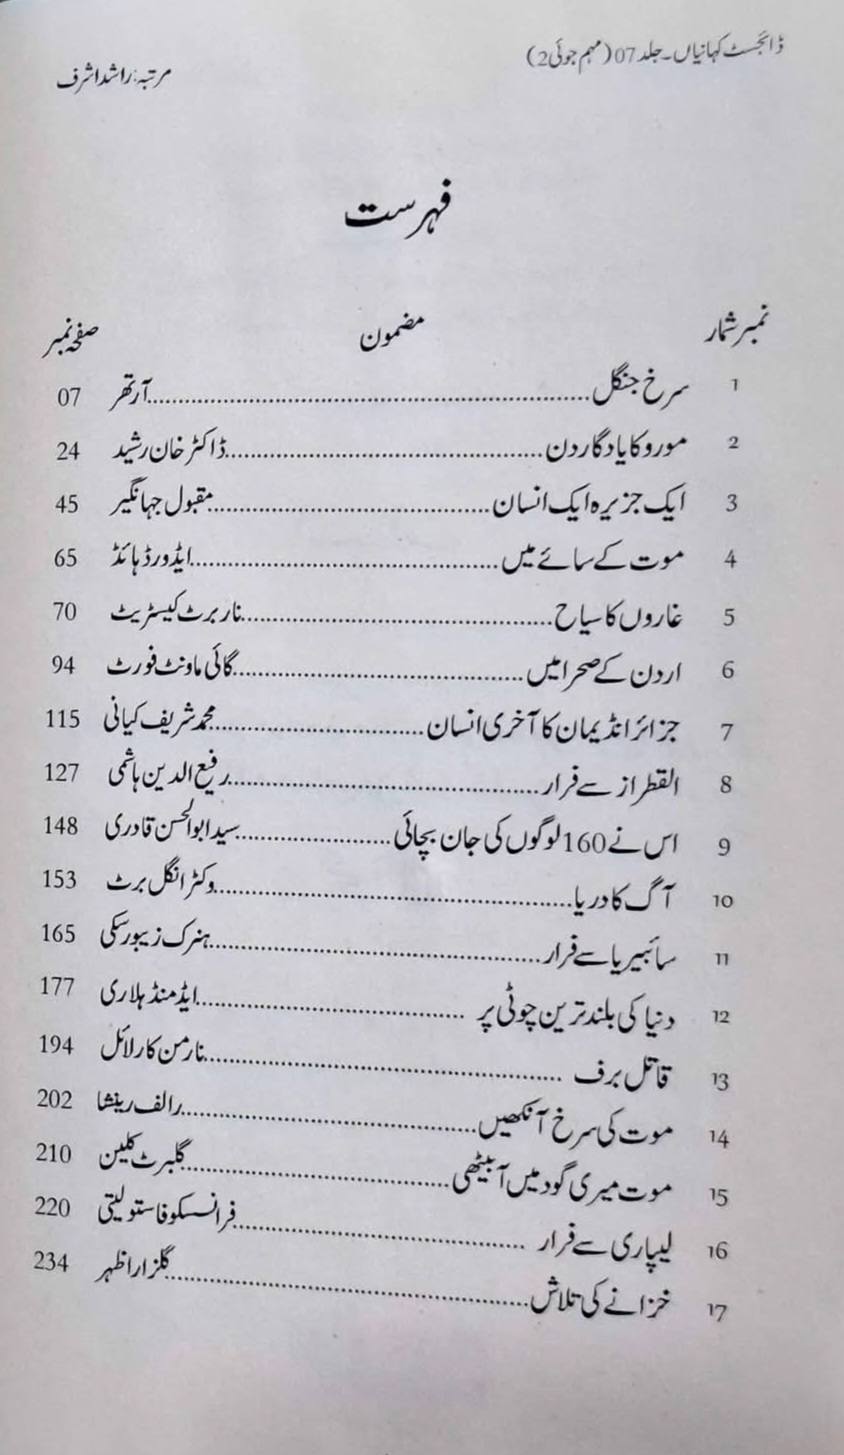 ڈائجسٹ کہانیاں۔جلد 07 (مہم جوئی 2)
مرتبہ: راشد اشرف
فہرست
نمبر شمار مضمون صفحہ نمبر
1 سرخ جنگل........................آرتھر 07
2 مورو کا یادگار دن........................ڈاکٹر خان رشید 24
3 ایک جزیرہ ایک انسان........................مقبول جہانگیر 45
4 موت کے سائے میں........................ایڈورڈ ہائڈ 65
5 غاروں کا سیاح........................نار برٹ کیسٹریٹ 70
6 اردن کے صحرا میں........................گائی ماونٹ فورٹ 94
7 جزائر انڈیمان کا آخری انسان........................محمد شریف کیانی 115
8 القطراز سے فرار........................رفیع الدین ہاشمی 127
9 اس نے 160 لوگوں کی جان بچائی........................سید ابوالحسن قادری 148
10 آگ کا دریا........................وکٹر انگل برٹ 153
11 سائبیریا سے فرار........................ہنرک زیبورسکی 165
12 دنیا کی بلند ترین چوٹی پر........................ایڈمنڈ ہلاری 177
13 قاتل برف........................نارمن کارلائل 194
14 موت کی سرخ آنکھیں........................رالف رینشا 202
15 موت میری گود میں آ بیٹھی........................گلبرٹ کلین 210
16 لیپاری سے فرار........................فرانسسکو فاستولیتی 220
17 خزانے کی تلاش........................گلزار اظہر 234